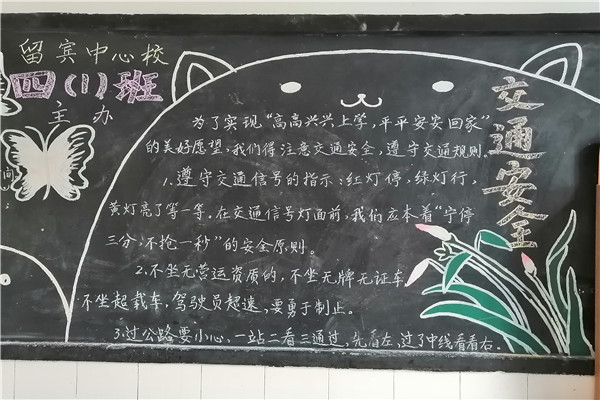 留宾中心校
四(1)班
主办
交通安全
为了实现“高高兴兴上学,平平安安回家”
的美好愿望,我们得注意交通安全,遵守交通规则。
1.遵守交通信号的指示:红灯停,绿灯行,
黄灯亮了等一等。在交通信号灯面前,我们应本着“宁停
三分,不抢一秒”的安全原则。
2.不坐无营运资质的,不坐无牌无证车,
不坐超载车,驾驶员超速,要勇于制止。
3.过公路要小心,一站二看三通过,先看左,过了中线看看右。